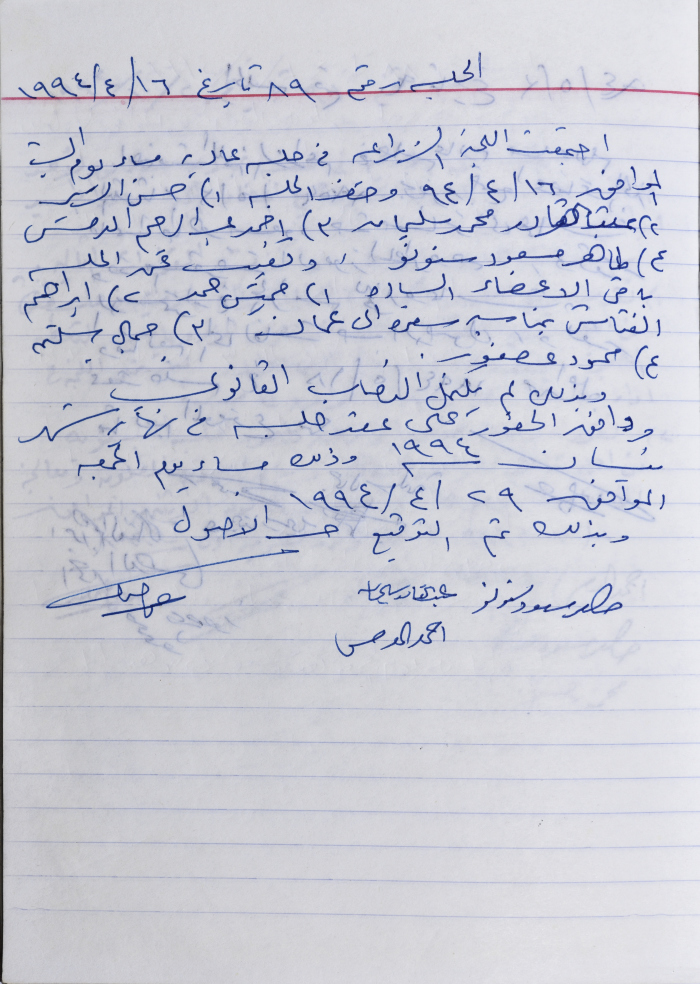 الجلسه رقم ٨٩ تاريخ ١٦/٤/١٩٩٤
اجتمعت اللجنة الزراعه في جلسه عاديه مساء يوم السبت
الموافق ١٦/٤/٩٤ وحضر الجلسه ١) حسن السيد
٢) عبد القادر محمد سليمان ٣) احمد عبد الرحيم الدمس
٤) طاهر مسعود سنونو ، وتغيب عن الجلسه
باقي الاعضاء الساده ١) خميس حمد ٢) ابراهيم
الفتاش بمناسبه سفره الى عمان ٣) جمال سلته
٤) محمود عصفور.
وبذلك لم يكتمل النصاب القانوني
ووافق الحضور على عقد جلسه في نهايه شهر
نيسان ١٩٩٤ وذلك مساء يوم الجمعه
الموافق ٢٩/٤/١٩٩٤
وبذلك تم التوقيع حسب الاصول
طاهر مسعود سنونو عبد القادر سليمان
احمد الدمس